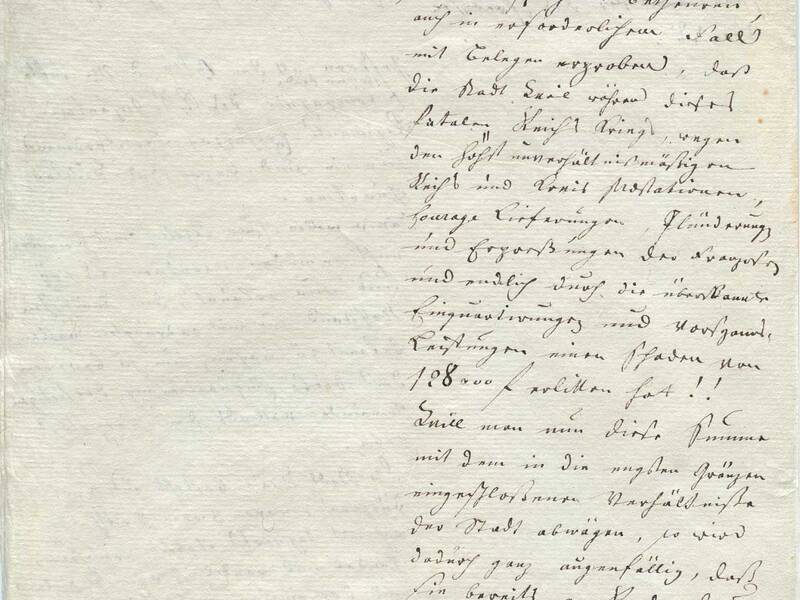 betheuren,
auch in erforderlichem Fall
mit Belegen erproben, daß
die Stadt Weil währed dieses
fatalen Reichs Kriegs, wegen
den höchst unverhältnismäßigen
Reichs und Kreis Præstationen,
Fourage Lieferungen, Plünderung
und Erpreßungen der Franzosen
und endlich durch die überspannte
Einquartirungen und Vorspanns-
Leistungen einen Schaden von
128000 f erlitten hat!!
Will man nun diese Summe
mit dem in die engsten Gränzen
eingeschloßenen Verhältniße
der Stadt abwägen, so wird
dadurch ganz augenfällig, daß
sie bereits